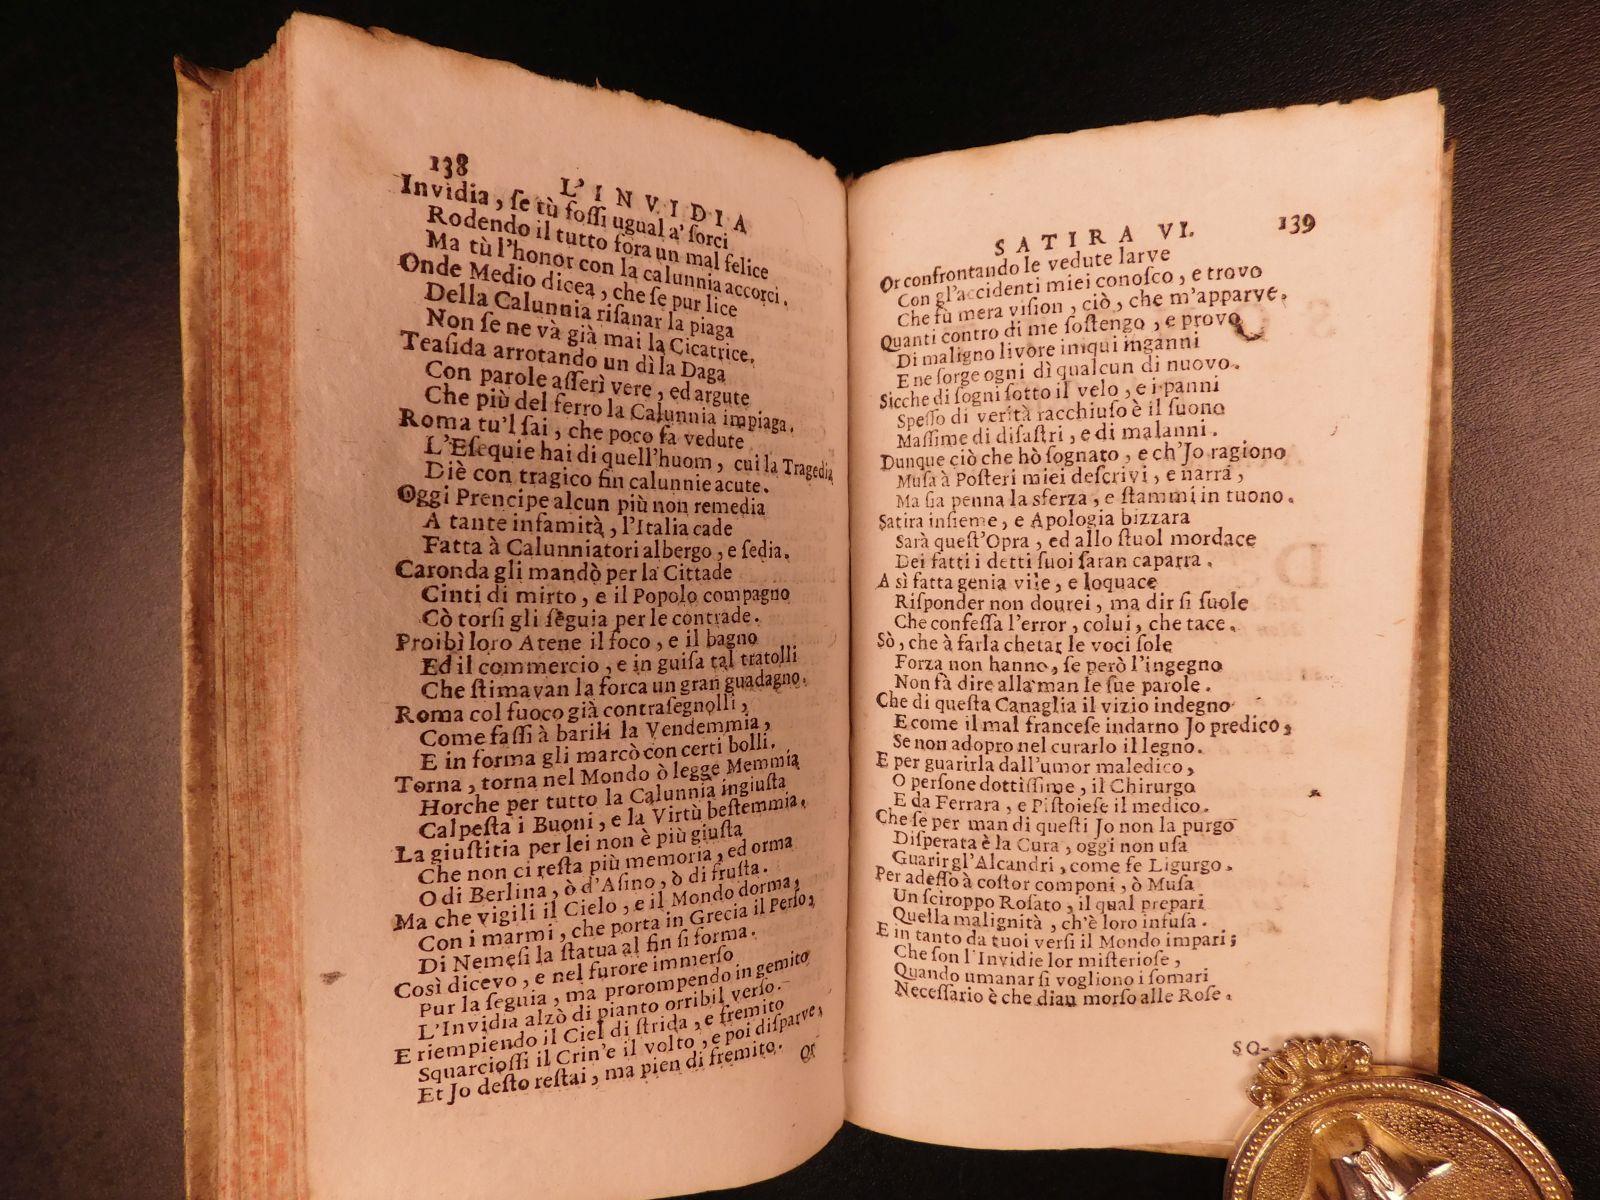 138
L'INVIDIA
Invidia, ſe tù foſſi ugual a' ſorci
Rodendo il tutto fora un mal felice
Ma tù l'honor con la calunnia accorci.
Onde Medio dicea, che ſe pur lice
Della Calunnia riſanar la piaga
Non ſe ne và già mai la Cicatrice.
Teaſida arrotando un dì la Daga
Con parole aſſerì vere, ed argute
Che più del ferro la Calunnia impiaga.
Roma tu'l ſai, che poco fa vedute
L'Eſequie hai di quell'huom, cui la Tragedia
Diè con tragico fin calunnie acute.
Oggi Prencipe alcun più non remedia
A tante infamità, l'Italia cade
Fatta à Calunniatori albergo, e ſedia.
Caronda gli mandò per la Cittade
Cinti di mirto, e il Popolo compagno
Cò torſi gli ſeguia per le contrade.
Proibì loro Atene il foco, e il bagno
Ed il commercio, e in guiſa tal tratolli
Che ſtimavan la forca un gran guadagno.
Roma col fuoco già contraſegnolli,
Come faſſi à barili la Vendemmia,
E in forma gli marcò con certi bolli.
Torna, torna nel Mondo ò legge Memmia
Horche per tutto la Calunnia ingiuſta
Calpeſta i Buoni, e la Virtù beſtemmia.
La giuſtitia per lei non è più giuſta
Che non ci reſta più memoria, ed orma
O di Berlina, ò d'Aſino, ò di fruſta.
Ma che vigili il Cielo, e il Mondo dorma,
Con i marmi, che porta in Grecia il Perſo,
Di Nemeſi la ſtatua al fin ſi forma.
Così dicevo, e nel furore immerſo
Pur la ſeguia, ma prorompendo in gemito
L'Invidia alzò di pianto orribil verſo.
E riempiendo il Ciel di ſtrida, e fremito
Squarcioſſi il Crin'e il volto, e poi diſparve,
Et Jo deſto reſtai, ma pien di fremito.
Or
SATIRA VI.
139
Or confrontando le vedute larve
Con gl'accidenti miei conoſco, e trovo
Che fù mera viſion, ciò, che m'apparve.
Quanti contro di me ſoſtengo, e provo
Di maligno livore iniqui inganni
E ne ſorge ogni dì qualcun di nuovo.
Sicche di ſogni ſotto il velo, e i panni
Speſſo di verità racchiuſo è il ſuono
Maſſime di diſaſtri, e di malanni.
Dunque ciò che hò ſognato, e ch'Jo ragiono
Muſa à Poſteri miei deſcrivi, e narra,
Ma ſia penna la sferza, e ſtammi in tuono.
Satira inſieme, e Apologia bizzara
Sarà queſt'Opra, ed allo ſtuol mordace
Dei fatti i detti ſuoi ſaran caparra.
A sì fatta genia vile, e loquace
Riſponder non dourei, ma dir ſi ſuole
Che confeſſa l'error, colui, che tace.
Sò, che à farla chetar le voci ſole
Forza non hanno, ſe però l'ingegno
Non fà dire alla man le ſue parole.
Che di queſta Canaglia il vizio indegno
E come il mal franceſe indarno Jo predico,
Se non adopro nel curarlo il legno.
E per guarirla dall'umor maledico,
O perſone dottiſſime, il Chirurgo
E da Ferrara, e Piſtoieſe il medico.
Che ſe per man di queſti Jo non la purgo
Diſperata è la Cura, oggi non uſa
Guarir gl'Alcandri, come fe Ligurgo.
Per adeſſo à coſtor componi, ò Muſa
Un ſciroppo Roſato, il qual prepari
Quella malignità, ch'è loro infuſa.
E in tanto da tuoi verſi il Mondo impari;
Che ſon l'Invidie lor miſterioſe,
Quando umanarſi vogliono i ſomari
Neceſſario è che dian morſo alle Roſe.
SO-